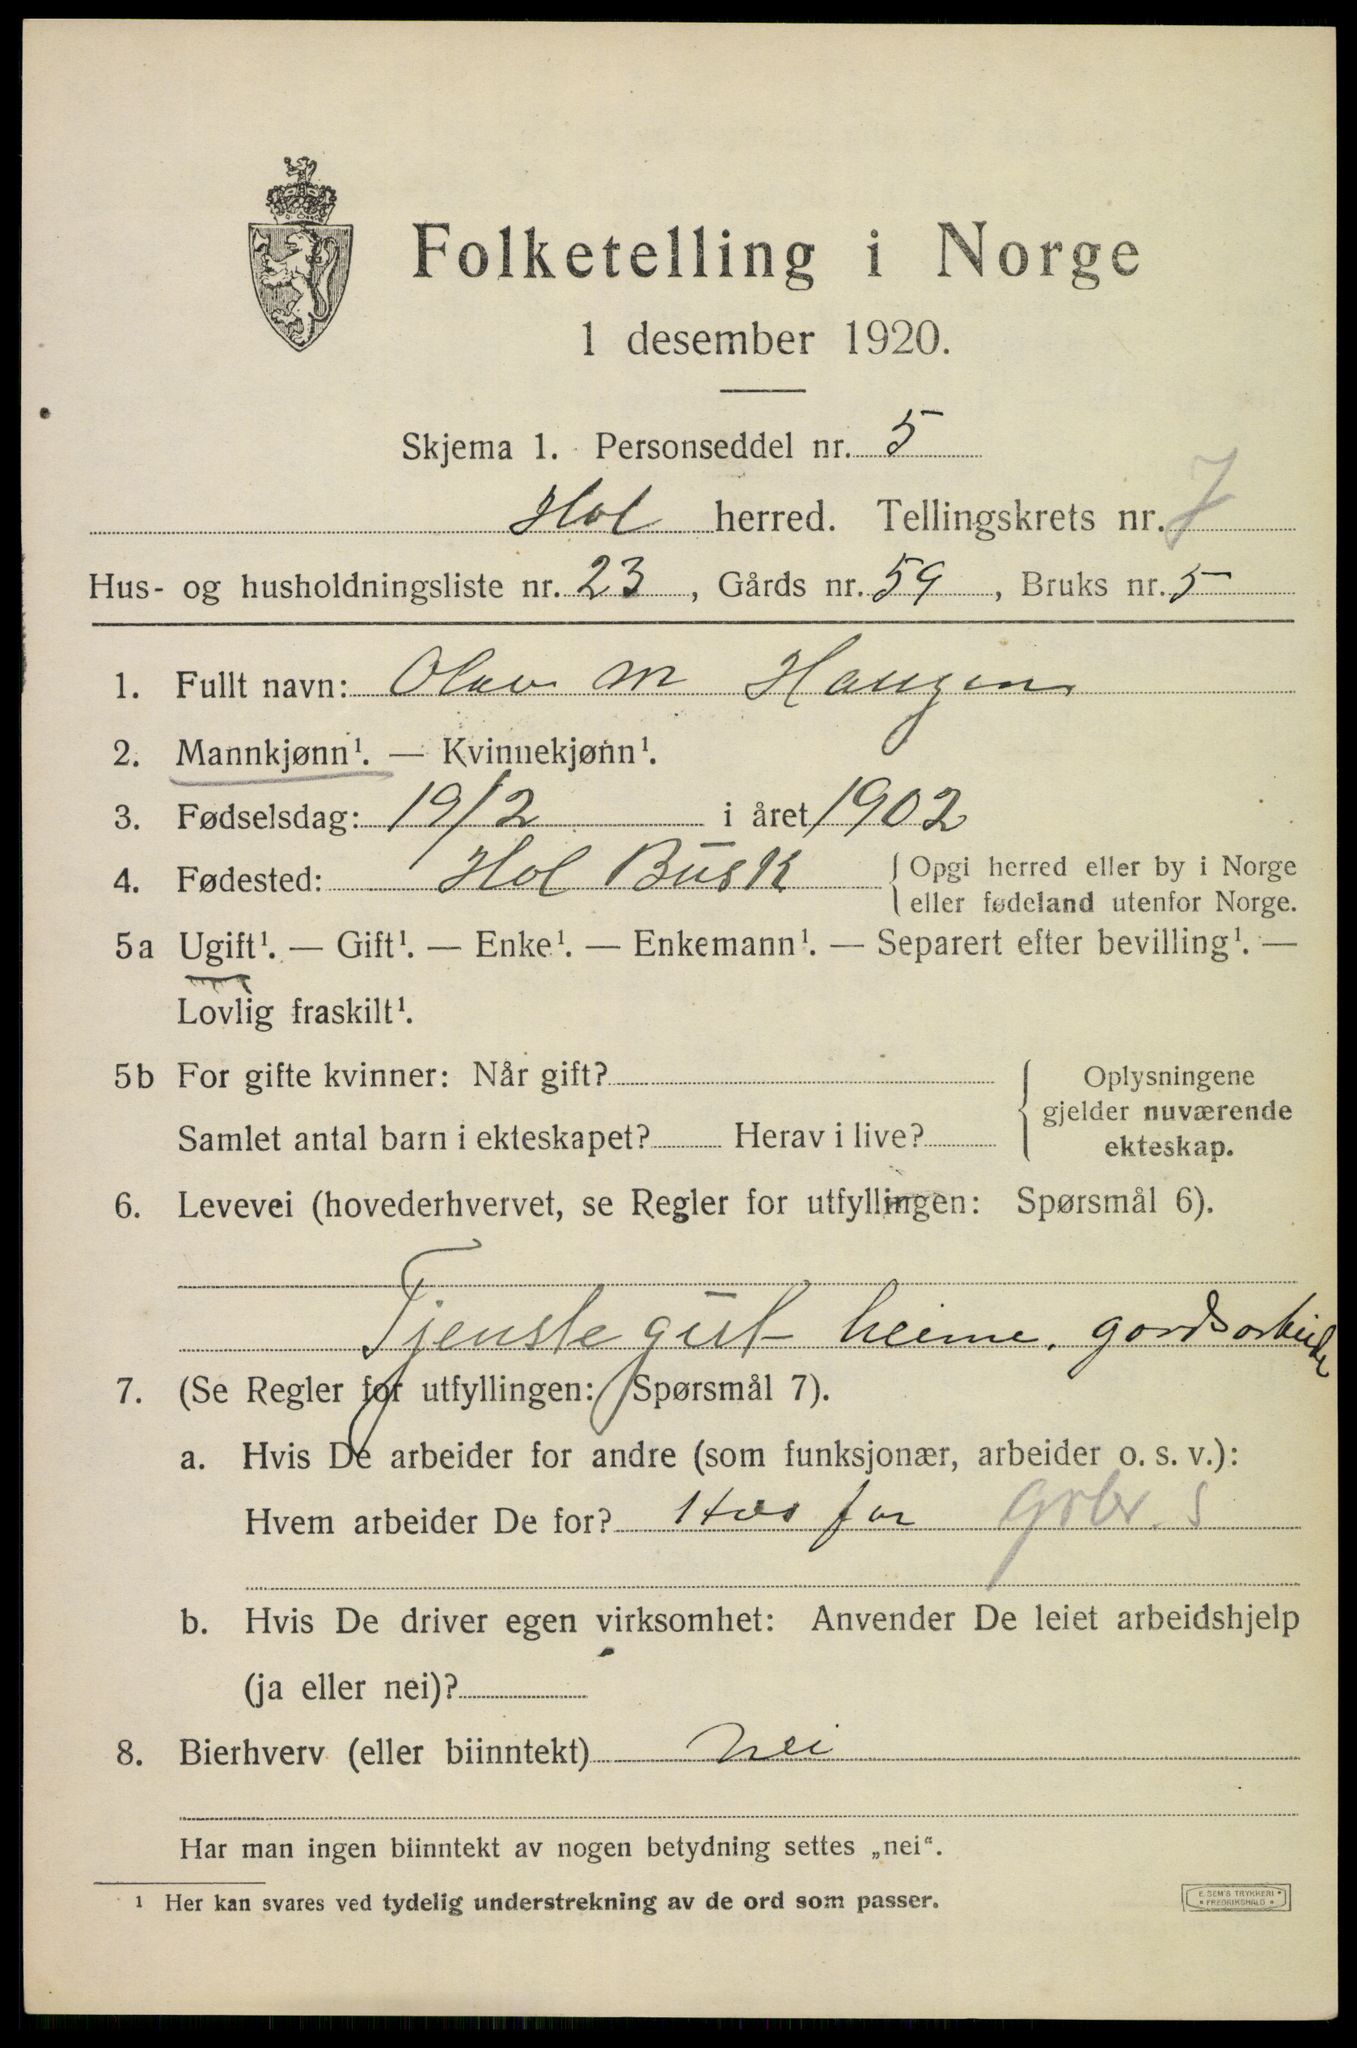 Folketelling i Norge
1 desember 1920.
Skjema 1. Personseddel nr. 5
Hol herred. Tellingskrets nr. 7
Hus- og husholdningsliste nr. 23, Gårds nr. 59, Bruks nr. 5
1. Fullt navn: Olav M Haugen
2. Mannkjønn¹. — Kvinnekjønn¹.
3. Fødselsdag: 19/2 i året 1902
4. Fødested: Hol Busk { Opgi herred eller by i Norge
eller fødeland utenfor Norge.
5a Ugift¹. — Gift¹. — Enke¹. — Enkemann¹. — Separert efter bevilling¹. —
Lovlig fraskilt¹.
5b For gifte kvinner: Når gift? { Oplysningene
gjelder nuværende
Samlet antal barn i ekteskapet? Herav i live? ekteskap.
6. Levevei (hovederhvervet, se Regler for utfyllingen: Spørsmål 6).
Tjenstegut heime. gardsarbeide
7. (Se Regler for utfyllingen: Spørsmål 7).
a. Hvis De arbeider for andre (som funksjonær, arbeider o. s. v.):
Hvem arbeider De for? Hos far Grbr. S
b. Hvis De driver egen virksomhet: Anvender De leiet arbeidshjelp
(ja eller nei)?
8. Bierhverv (eller biinntekt) nei
Har man ingen biinntekt av nogen betydning settes „nei“.
¹ Her kan svares ved tydelig understrekning av de ord som passer.
E. SEM'S TRYKKERI
FREDRIKSHALD